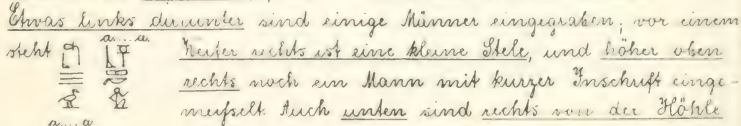 Etwas links darunter sind einige Männer eingegraben; vor einem
steht a....a.
Weiter rechts ist eine kleine Stele, und höher oben
rechts noch ein Mann mit kurzer Inschrift einge-
meißelt. Auch unten sind rechts von der Höhle
a....a